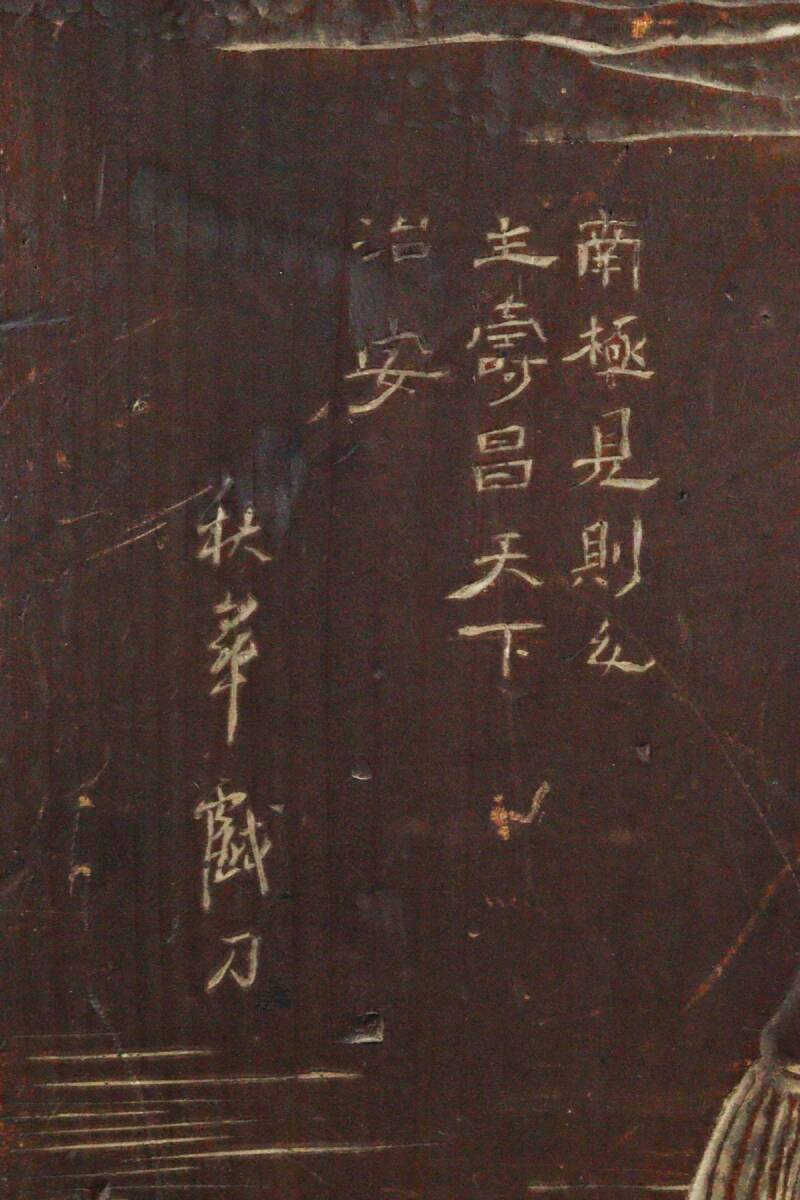 南極見則人
主壽昌天下
治安
秋華戲刀